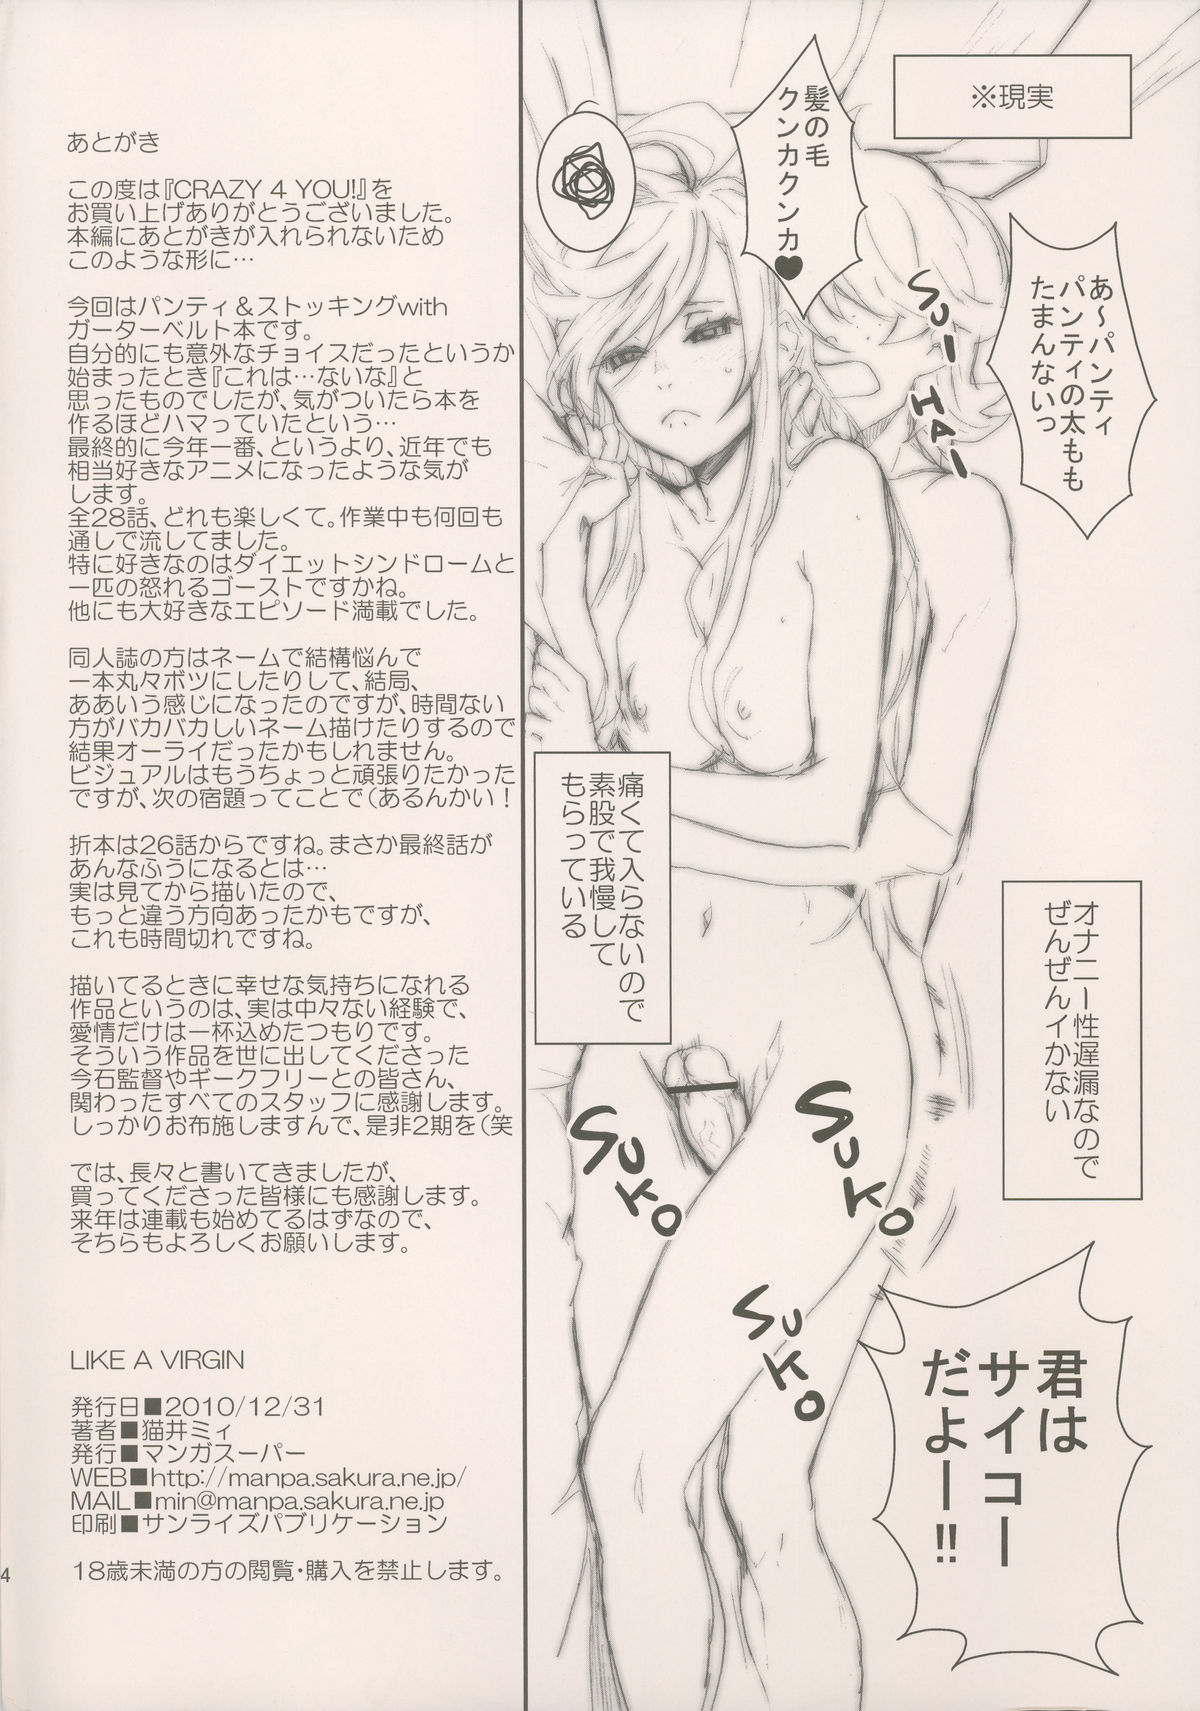 ※現実
あ～パンティ
パンティの太もも
たまんないっ
髪の毛
クンカクンカ♥
SUーHAー
痛くて入らないので
素股で我慢して
もらっている
オナニー性遅漏なので
ぜんぜんイかない
SUKO
SUKO
SUKO
君は
サイコー
だよー!!
あとがき
この度は『CRAZY 4 YOU!』を
お買い上げありがとうございました。
本編にあとがきが入れられないため
このような形に…
今回はパンティ＆ストッキングwith
ガーターベルト本です。
自分的にも意外なチョイスだったというか
始まったとき『これは…ないな』と
思ったものでしたが、気がついたら本を
作るほどハマっていたという…
最終的に今年一番、というより、近年でも
相当好きなアニメになったような気が
します。
全28話、どれも楽しくて。作業中も何回も
通しで流してました。
特に好きなのはダイエットシンドロームと
一匹の怒れるゴーストですかね。
他にも大好きなエピソード満載でした。
同人誌の方はネームで結構悩んで
一本丸々ボツにしたりして、結局、
ああいう感じになったのですが、時間ない
方がバカバカしいネーム描けたりするので
結果オーライだったかもしれません。
ビジュアルはもうちょっと頑張りたかった
ですが、次の宿題ってことで（あるんかい！
折本は26話からですね。まさか最終話が
あんなふうになるとは…
実は見てから描いたので、
もっと違う方向あったかもですが、
これも時間切れですね。
描いてるときに幸せな気持ちになれる
作品というのは、実は中々ない経験で、
愛情だけは一杯込めたつもりです。
そういう作品を世に出してくださった
今石監督やギークフリーとの皆さん、
関わったすべてのスタッフに感謝します。
しっかりお布施しますんで、是非2期を（笑
では、長々と書いてきましたが、
買ってくださった皆様にも感謝します。
来年は連載も始めてるはずなので、
そちらもよろしくお願いします。
LIKE A VIRGIN
発行日■2010/12/31
著者■猫井ミィ
発行■マンガスーパー
WEB■http://manpa.sakura.ne.jp/
MAIL■min@manpa.sakura.ne.jp
印刷■サンライズパブリケーション
18歳未満の方の閲覧・購入を禁止します。
4